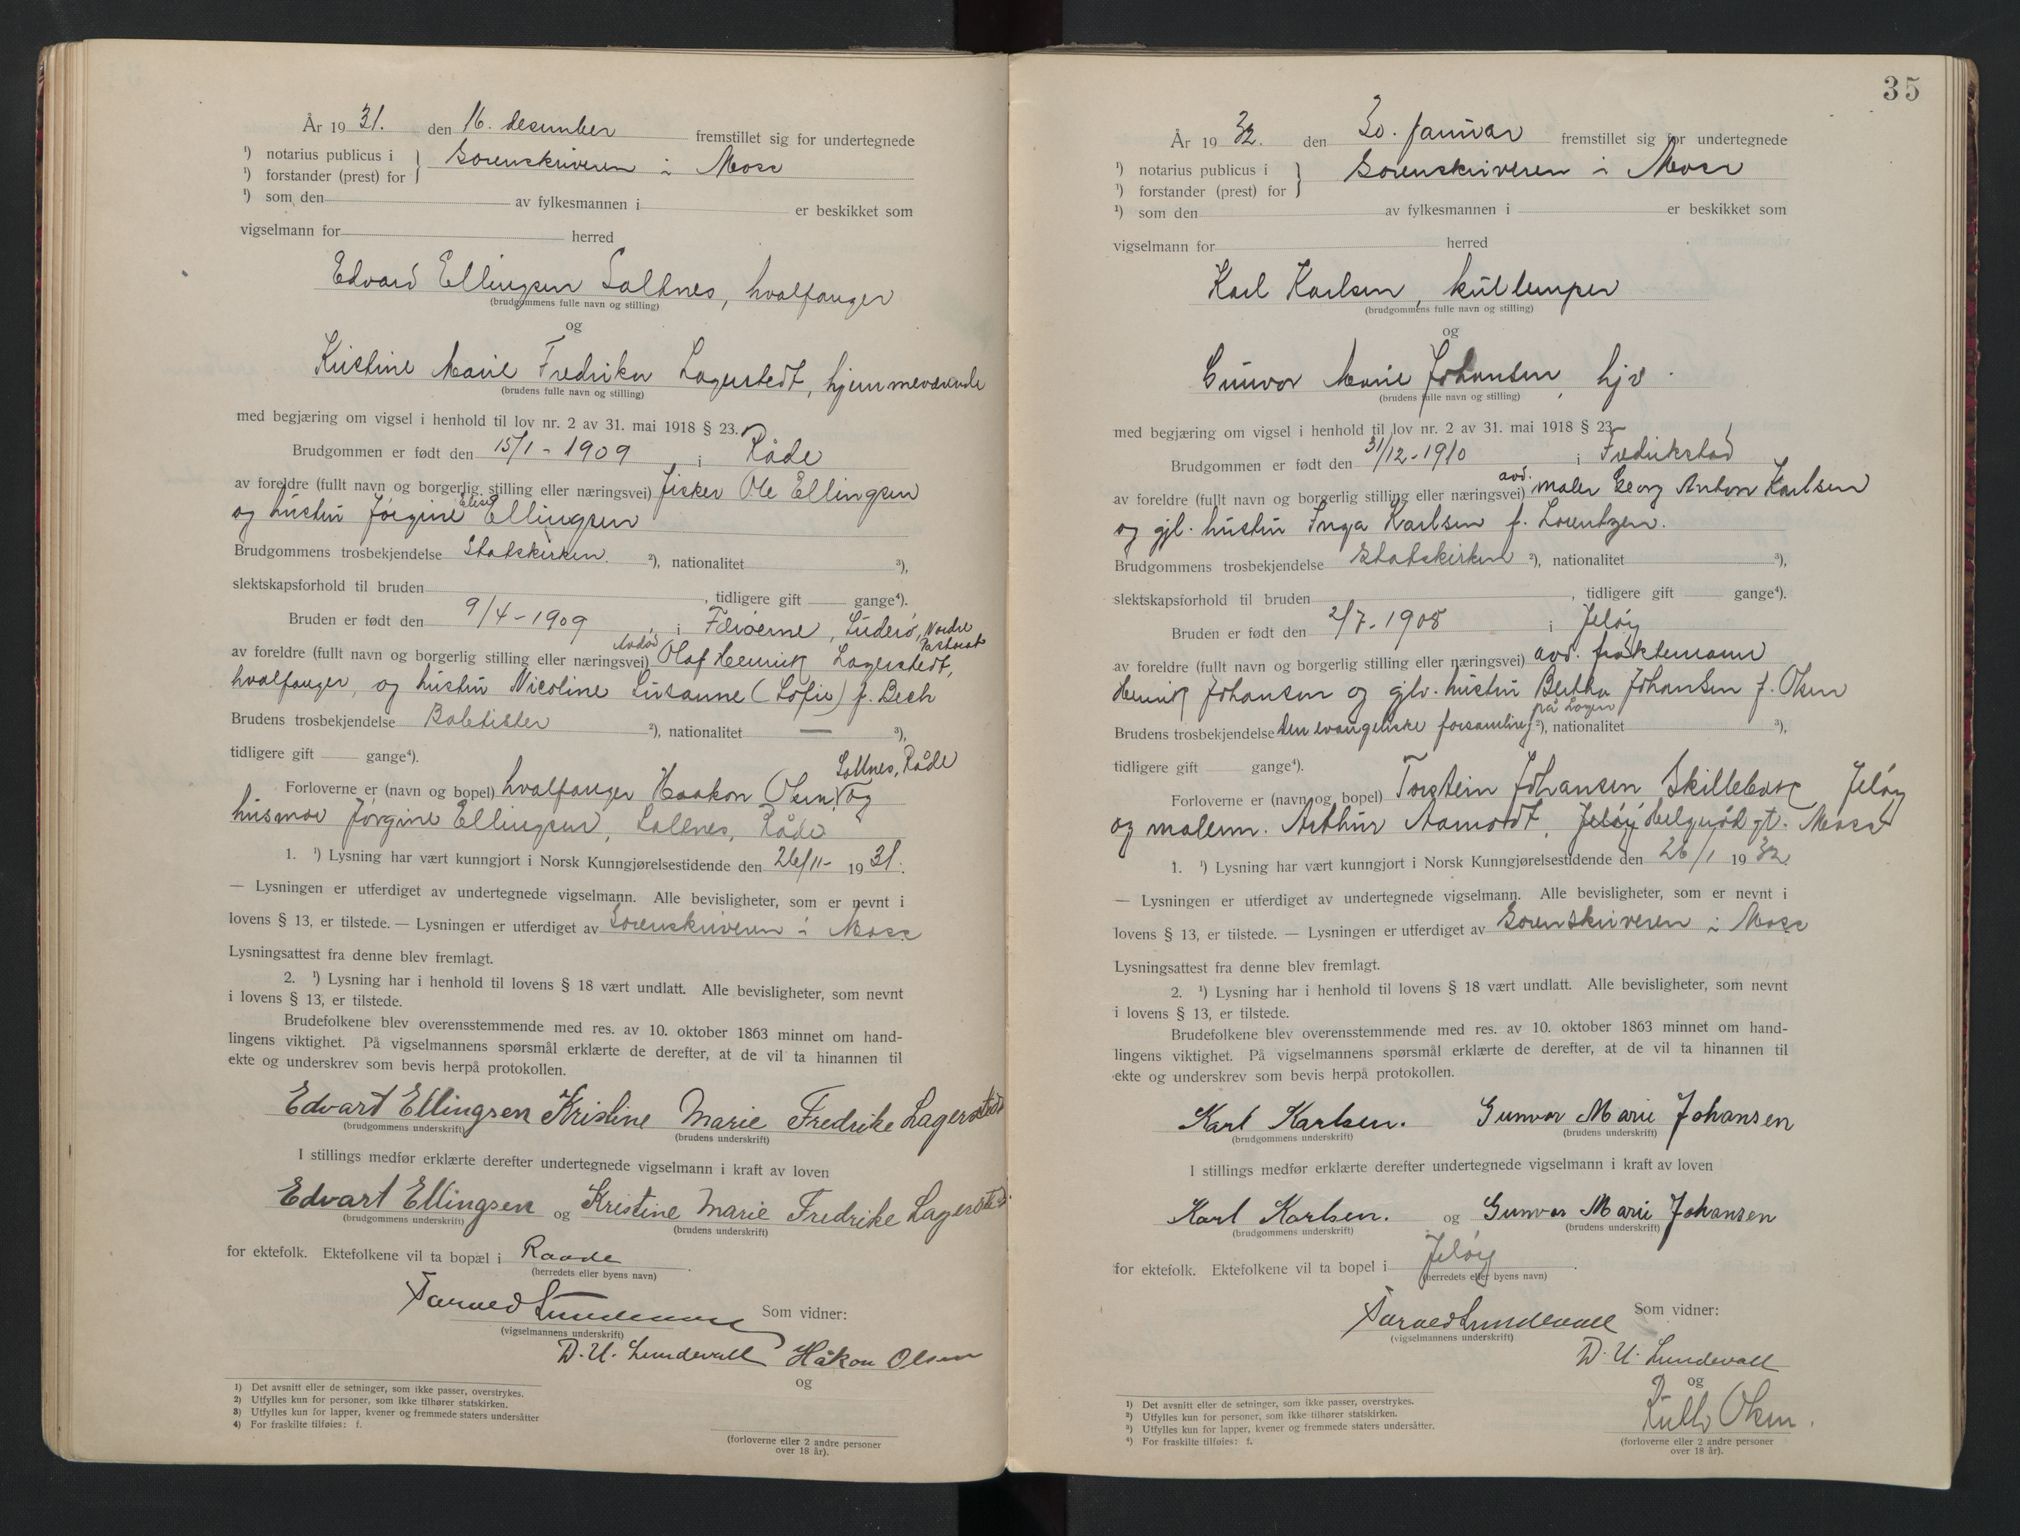 År 1931. den 16. desember fremstillet sig for undertegnede
¹) notarius publicus i } Sorenskriveren i Moss
¹) forstander (prest) for
¹) som den av fylkesmannen i er beskikket som
vigselmann for herred
Edvard Ellingsen Saltnes, hvalfanger
(brudgommens fulle navn og stilling)
og
Kristine Marie Fredrikke Lagerstedt, hjemmeværende
(brudens fulle navn og stilling)
med begjæring om vigsel i henhold til lov nr. 2 av 31. mai 1918 § 23.
Brudgommen er født den 15/1-1909 i Råde
av foreldre (fullt navn og borgerlig stilling eller næringsvei) fisker Ole Ellingsen
og hustru Jørgine Elise Ellingsen
Brudgommens trosbekjendelse Statskirken. ²), nationalitet ³),
slektskapsforhold til bruden , tidligere gift gange⁴).
Bruden er født den 9/4-1909 , i Færøerne, Suderø, Nordre Pastorat
av foreldre (fullt navn og borgerlig stilling eller næringsvei) Avdød Olaf Henrik Lagerstedt,
hvalfanger, og hustru Nicoline Susanne (Sofie) f. Bech
Brudens trosbekjendelse Babtister ²), nationalitet — ³),
tidligere gift gange⁴).
Forloverne er (navn og bopel) hvalfanger Haakon Olsen, Saltnes, Råde og
husmor Jørgine Ellingsen, Saltnes, Råde
1. ¹) Lysning har vært kunngjort i Norsk Kunngjørelsestidende den 26/11- 1931.
— Lysningen er utferdiget av undertegnede vigselmann. Alle bevisligheter, som er nevnt i
lovens § 13, er tilstede. — Lysningen er utferdiget av Sorenskriveren i Moss
Lysningsattest fra denne blev fremlagt.
2. ¹) Lysning har i henhold til lovens § 18 vært undlatt. Alle bevisligheter, som nevnt
i lovens § 13, er tilstede.
Brudefolkene blev overensstemmende med res. av 10. oktober 1863 minnet om hand-
lingens viktighet. På vigselmannens spørsmål erklærte de derefter, at de vil ta hinannen til
ekte og underskrev som bevis herpå protokollen.
Edvart Ellingsen Kristine Marie Fredrike Lagerstedt
(brudgommens underskrift) (brudens underskrift)
I stillings medfør erklærte derefter undertegnede vigselmann i kraft av loven
Edvart Ellingsen og Kristine Marie Fredrike Lagerstedt
(brudgommens underskrift) (brudens underskrift)
for ektefolk. Ektefolkene vil ta bopæl i Raade
(herredets eller byens navn)
Lundevall Som vidner:
(vigselmannens underskrift)
D. U. Lundevall Håkon Olsen
og
1) Det avsnitt eller de setninger, som ikke passer, overstrykes.
2) Utfylles kun for personer, som ikke tilhører statskirken.
3) Utfylles kun for lapper, kvener og fremmede staters undersåtter
4) For fraskilte tilføies: f.
(forloverne eller 2 andre personer
over 18 år).
35
År 1932. den 30. januar fremstillet sig for undertegnede
¹) notarius publicus i } Sorenskriveren i Moss
¹) forstander (prest) for
¹) som den av fylkesmannen i er beskikket som
vigselmann for herred
Karl Karlsen, kullemper
(brudgommens fulle navn og stilling)
og
Gunvor Marie Johansen, hjv.
(brudens fulle navn og stilling)
med begjæring om vigsel i henhold til lov nr. 2 av 31. mai 1918 § 23.
Brudgommen er født den 31/12-1910 i Fredrikstad
av foreldre (fullt navn og borgerlig stilling eller næringsvei) avd. maler Georg Anton Karlsen
og gjl. hustru Inga Karlsen f. Lorentzen.
Brudgommens trosbekjendelse Statskirken ²), nationalitet ³),
slektskapsforhold til bruden , tidligere gift gange⁴).
Bruden er født den 2/7-1908 i Jeløy
av foreldre (fullt navn og borgerlig stilling eller næringsvei) avd. fraktemann
Henrik Johansen og gjlv. hustru Bertha Johansen f. Olsen
Brudens trosbekjendelse den evangeliske forsamling på Logen ²), nationalitet ³),
tidligere gift gange⁴).
Forloverne er (navn og bopel) Torstein Johansen Skillebæk Jeløy
og malerm. Arthur Aamodt, Jeløy Helgerød gt. Moss
1. ¹) Lysning har vært kunngjort i Norsk Kunngjørelsestidende den 26/1 1932
— Lysningen er utferdiget av undertegnede vigselmann. Alle bevisligheter, som er nevnt i
lovens § 13, er tilstede. — Lysningen er utferdiget av Sorenskriveren i Moss
Lysningsattest fra denne blev fremlagt.
2. ¹) Lysning har i henhold til lovens § 18 vært undlatt. Alle bevisligheter, som nevnt
i lovens § 13, er tilstede.
Brudefolkene blev overensstemmende med res. av 10. oktober 1863 minnet om hand-
lingens viktighet. På vigselmannens spørsmål erklærte de derefter, at de vil ta hinannen til
ekte og underskrev som bevis herpå protokollen.
Karl Karlsen. Gunvor Marie Johansen
(brudgommens underskrift) (brudens underskrift)
I stillings medfør erklærte derefter undertegnede vigselmann i kraft av loven
Karl Karlsen. og Gunvor Marie Johansen
(brudgommens underskrift) (brudens underskrift)
for ektefolk. Ektefolkene vil ta bopel i Jeløy
(herredets eller byens navn)
Lundevall Som vidner:
(vigselmannens underskrift)
D. U. Lundevall
og
Ruth Olsen.
1) Det avsnitt eller de setninger, som ikke passer, overstrykes.
2) Utfylles kun for personer, som ikke tilhører statskirken.
3) Utfylles kun for lapper, kvener og fremmede staters undersåtter.
4) For fraskilte tilføies: f.
(forloverne eller 2 andre personer
over 18 år).